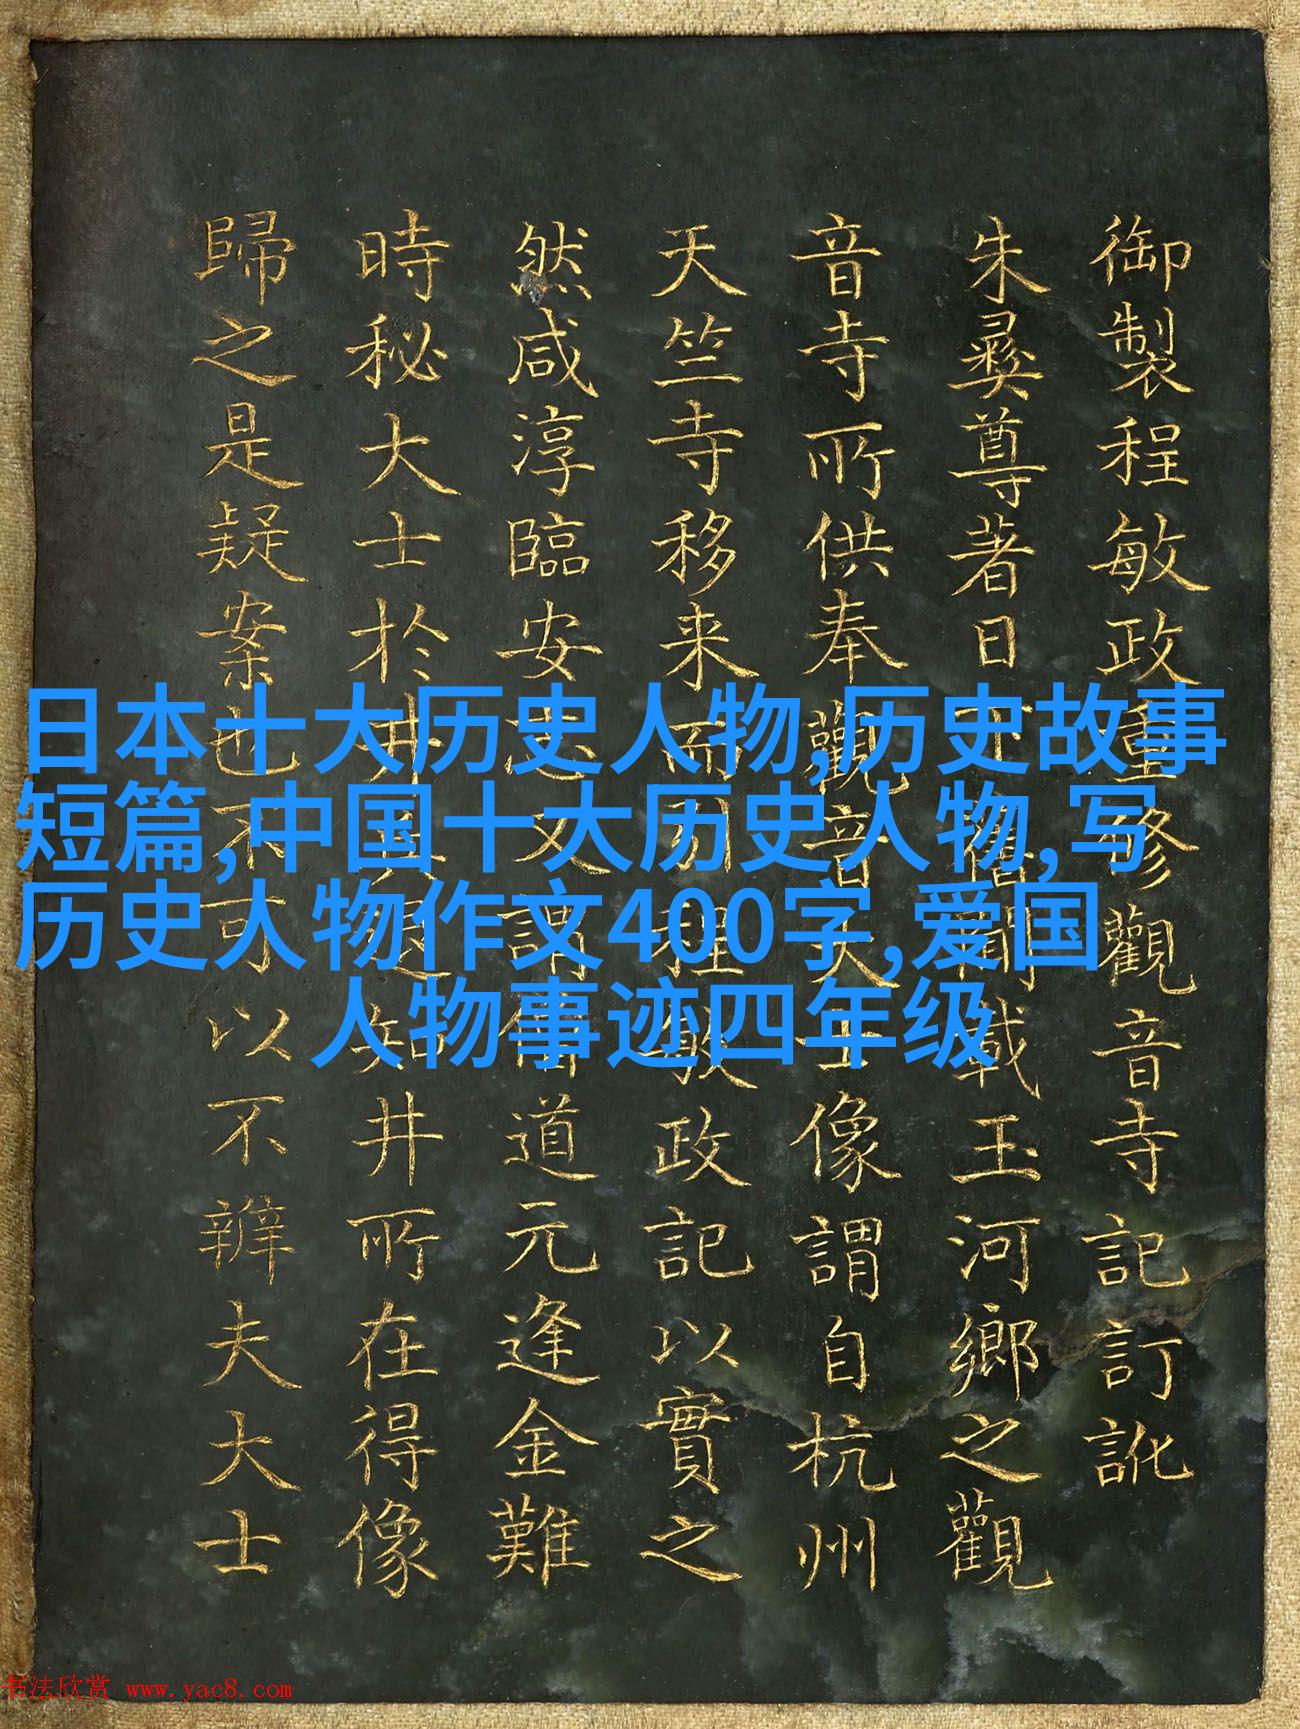 御製程敏政重修觀音寺記訂訛
朱彝尊著日下舊聞載玉河鄉之觀
音寺所供奉觀音大士像謂自杭州
天竺寺移来而引程敏政記以實之
然咸淳臨安志又謂僧道元逢金難
時秘大士於井兵退知井所在得像
歸之是疑案也不可以不辨夫大士
日本十大历史人物,历史故事
短篇,中国十大历史人物,写
历史人物作文400字,爱国
人物事迹四年级
书法欣赏 www.yac8.com